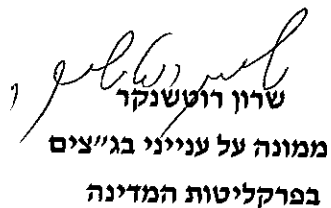 שרון רוטשנקר
ממונה על ענייני בג״צים
בפרקליטות המדינה